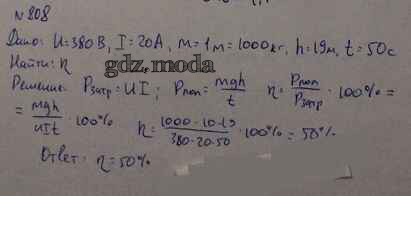 № 808
Дано: U=380В, I=20А, m=1т=1000кг, h=19м, t=50с
gdz.moda
Найти: η
Решение: Pзатр=UI; Pпол=mgh/t η=Pпол/Pзатр·100%=
=mgh/UIt·100% η=1000·10·19/380·20·50·100%=50%
Ответ: η=50%